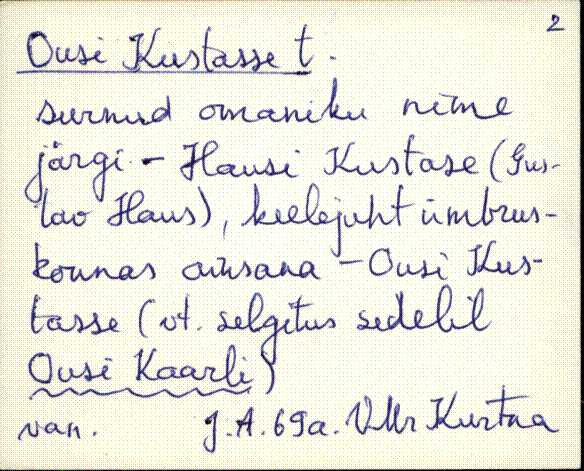 2
Ousi Kustasse t.
surnud omaniku nime
järgi - Hausi Kustase (Gus-
tav Haus), keelejuht ümbrus-
konnas ainsana - Ousi Kus-
tasse (vt. selgitus sedelil
Ousi Kaarli)
van. J.A. 69a. VMr Kurtna